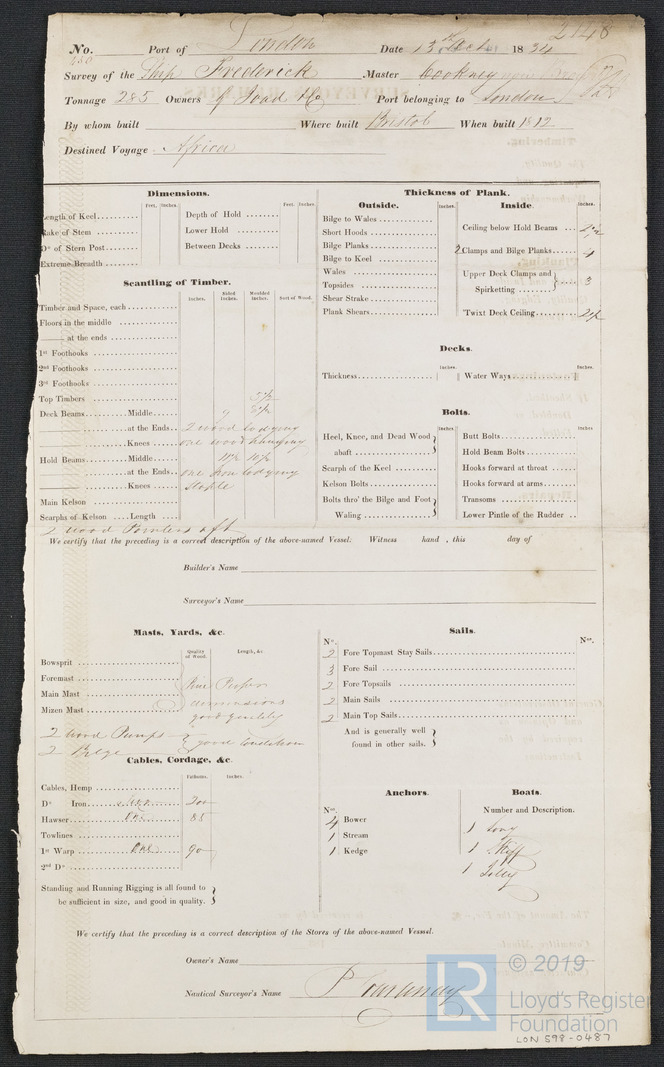 2148
No. Port of London Date 13th 1834
Survey of the Ship Frederick Master
Tonnage 285 Owners Port belonging to London
By whom built Where built Bristol When built 1812
Destined Voyage Africa
Dimensions.
Feet. Inches. Feet. Inches.
Length of Keel Depth of Hold
Rake of Stem Lower Hold
Do of Stern Post Between Decks
Extreme Breadth
Thickness of Plank.
Outside. Inches. Inside. Inches.
Bilge to Wales
Short Hoods Ceiling below Hold Beams
Bilge Planks 2 Clamps and Bilge Planks 4
Bilge to Keel
Wales Upper Deck Clamps and
Topsides Spirketting 3
Shear Strake
Plank Shears 'Twixt Deck Ceiling 2½
Scantling of Timber.
Inches. Sided Inches. Moulded Inches. Sort of Wood.
Timber and Space, each
Floors in the middle
at the ends
1st Foothooks
2nd Foothooks
3rd Foothooks
Top Timbers 5½
Deck Beams Middle 9 8½
at the Ends 2 wood lodging
Knees one wood hanging
Hold Beams Middle 11½ 10½
at the Ends one Iron lodging
Knees Staple
Main Kelson
Scarphs of Kelson Length
2 wood Pointers aft
Decks.
Inches. Inches.
Thickness Water Ways
Bolts.
Inches Inches
Heel, Knee, and Dead Wood Butt Bolts
abaft Hold Beam Bolts
Scarph of the Keel Hooks forward at throat
Kelson Bolts Hooks forward at arms
Bolts thro' the Bilge and Foot Transoms
Waling Lower Pintle of the Rudder
We certify that the preceding is a correct description of the above-named Vessel. Witness hand , this day of
Builder's Name
Surveyor's Name
Masts, Yards, &c.
Quality of Wood. Length, &c
Bowsprit
Foremast Pine Proper
Main Mast dimensions
Mizen Mast good quality
2 wood Pumps good condition
2 Bilge
Sails.
No. Nos.
2 Fore Topmast Stay Sails
3 Fore Sail
2 Fore Topsails
2 Main Sails
2 Main Top Sails
And is generally well
found in other sails.
Cables, Cordage, &c.
Fathoms. Inches.
Cables, Hemp
Do Iron 200
Hawser One 85
Towlines
1st Warp One 90
2nd Do
Standing and Running Rigging is all found to
be sufficient in size, and good in quality.
Anchors.
No.
4 Bower
1 Stream
1 Kedge
Boats.
Number and Description.
1 Long
1 Skiff
1 Jolley
We certify that the preceding is a correct description of the Stores of the above-named Vesssel.
Owner's Name
Nautical Surveyor's Name P Courtenay
LR
© 2019
Lloyd's Register
Foundation
LON 598-0487